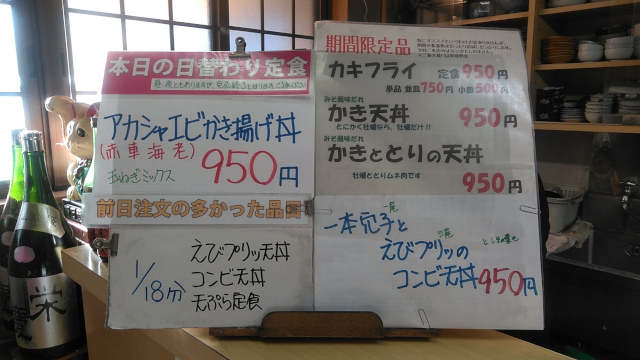 本日の日替わり定食
アカシャエビかき揚げ丼
(赤車海老)
950円
玉ねぎミックス
前日注文の多かった品
1/18分
えびプリッ天丼
コンビ天丼
天ぷら定食
期間限定品
カキフライ 定食950円
単品 並皿750円 小皿500円
みそ風味だれ
かき天丼 950円
とにかく牡蠣なら、牡蠣だけ!!
みそ風味だれ
かきととりの天丼
牡蠣ととりムネ肉です
950円
一本穴子と
えびプリッの
コンビ天丼950円